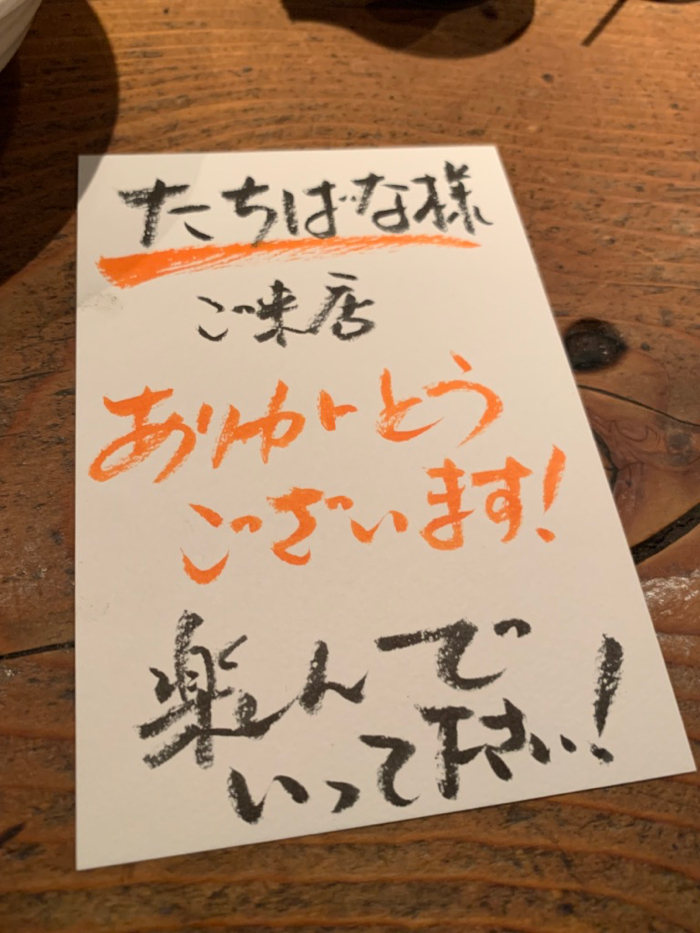 たちばな様
ご来店
ありがとう
ございます!
楽しんで
いって下さい!